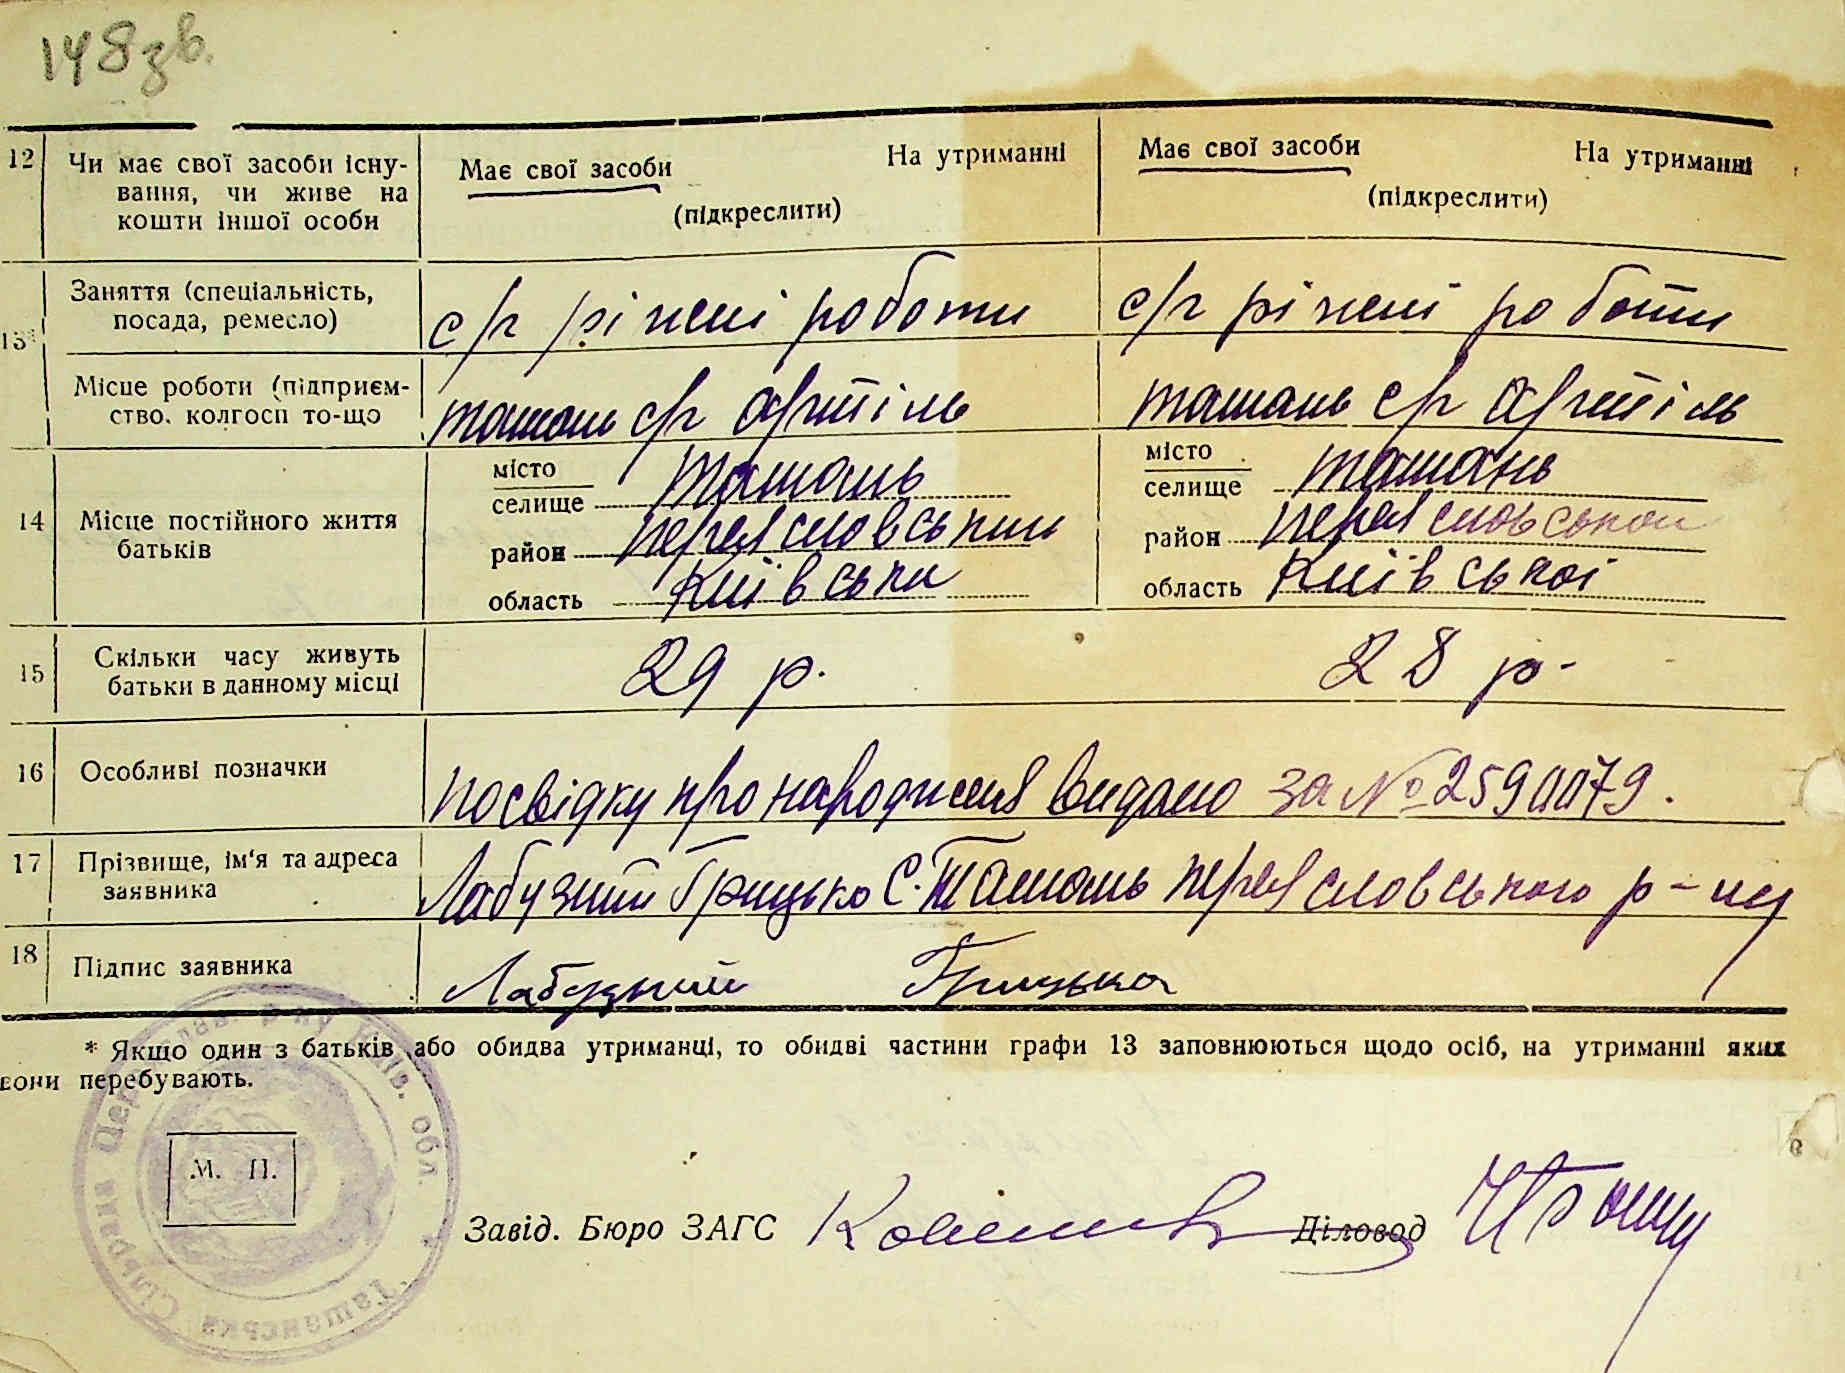 148зв.
12 Чи має свої засоби існу-
вання, чи живе на
кошти іншої особи
Має свої засоби На утриманні
(підкреслити)
Має свої засоби На утриманні
(підкреслити)
13* Заняття (спеціальність,
посада, ремесло)
с/г різнені роботи
с/г різнені роботи
Місце роботи (підприєм-
ство, колгосп то-що
ташань с/г артіль
ташань с/г артіль
14 Місце постійного життя
батьків
місто
селище Ташань
район переяславський
область Київська
місто
селище Ташань
район переяславської
область Київської
15 Скільки часу живуть
батьки в данному місці
29 р.
28 р-
16 Особливі позначки
посвідку про народження видано за № 2590079.
17 Прізвище, ім'я та адреса
заявника
Лабузний Грицько С. Ташань переяславського р-ну
18 Підпис заявника
Лабузний Грицько
* Якщо один з батьків або обидва утриманці, то обидві частини графи 13 заповнюються щодо осіб, на утриманні яких
вони перебувають.
М. П.
Київ. обл. Ташанська Сільрада
Завід. Бюро ЗАГС
Діловод